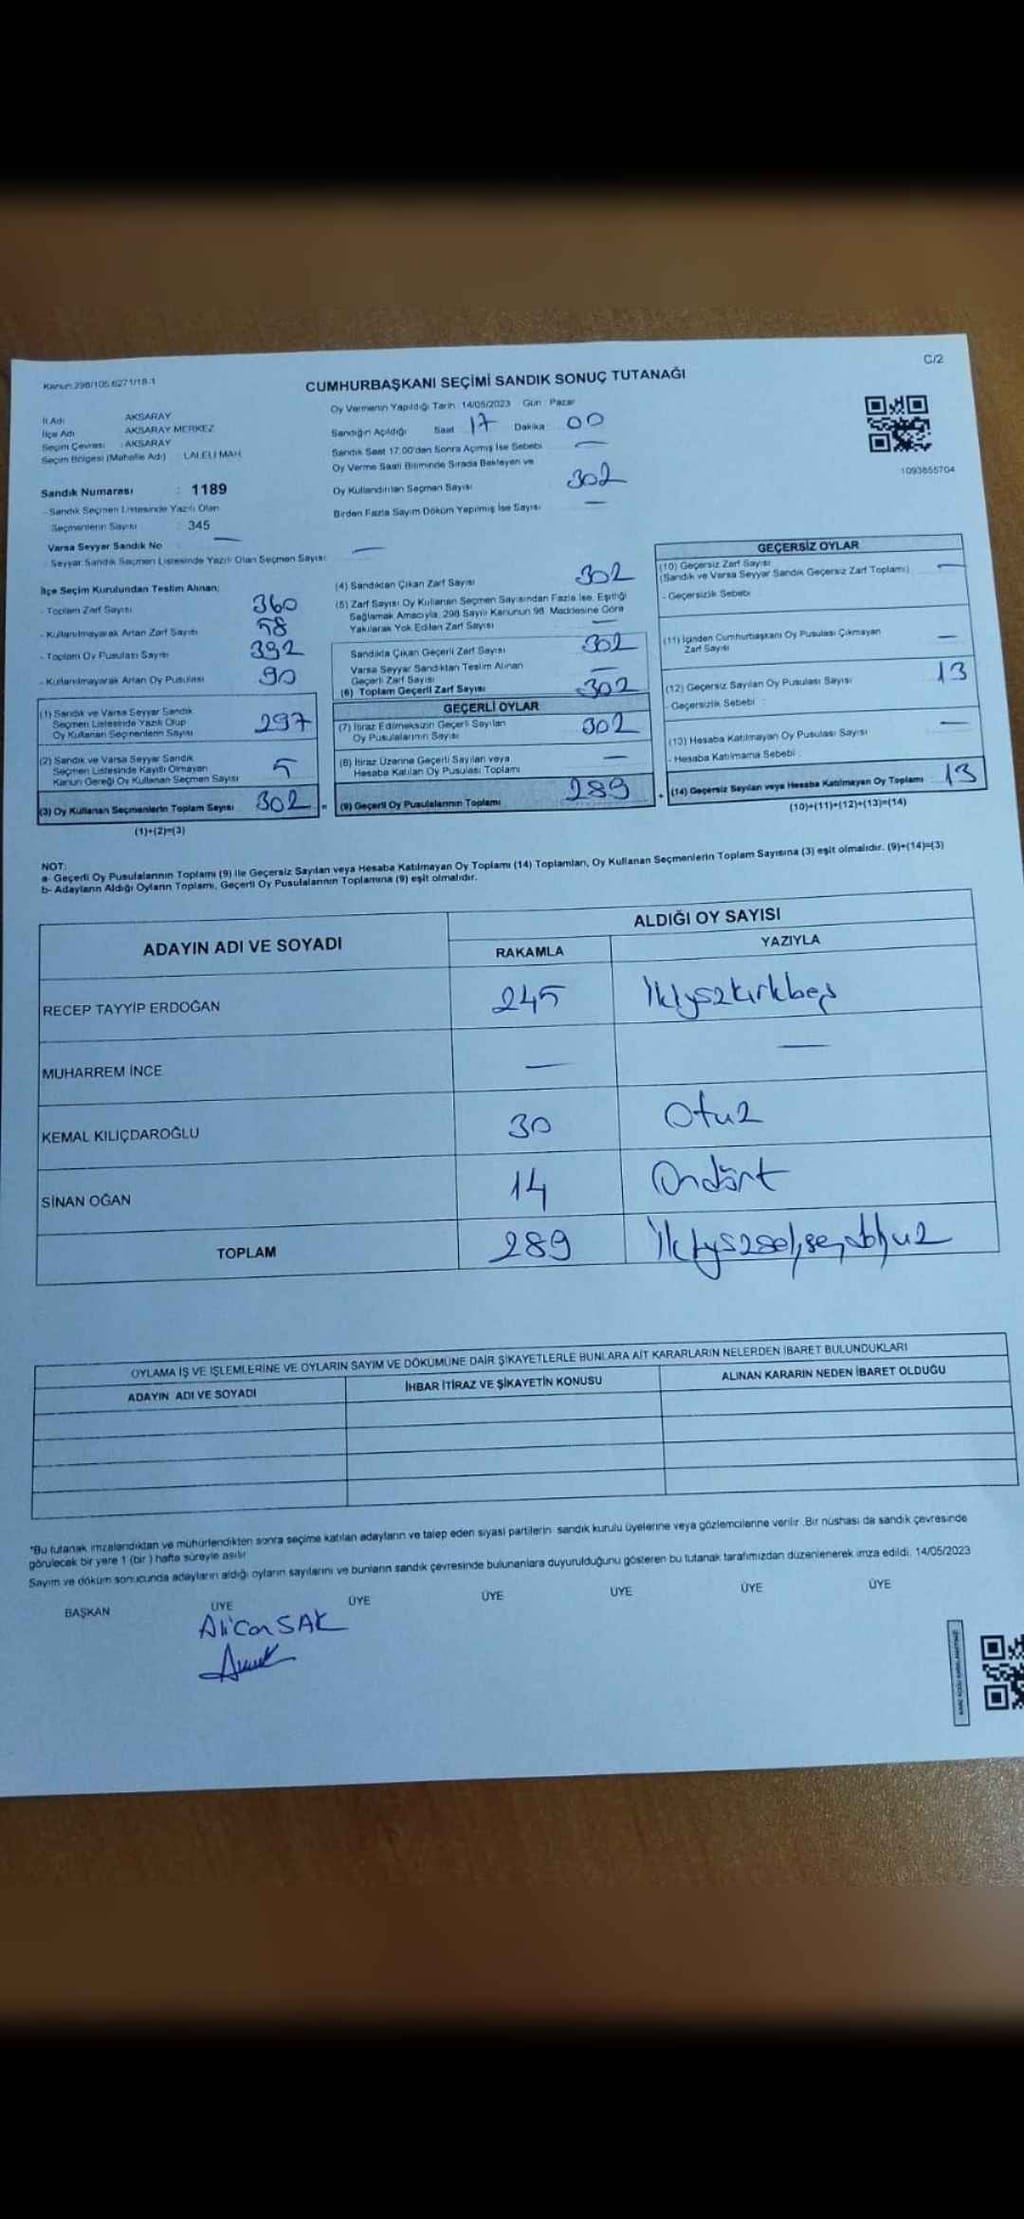 C/2
Kanun:298/105.6271/18-1
CUMHURBAŞKANI SEÇİMİ SANDIK SONUÇ TUTANAĞI
İl Adı AKSARAY
İlçe Adı AKSARAY MERKEZ
Seçim Çevresi : AKSARAY
Seçim Bölgesi (Mahalle Adı) LALELİ MAH.
Sandık Numarası : 1189
- Sandık Seçmen Listesinde Yazılı Olan
Seçmenlerin Sayısı : 345
Varsa Seyyar Sandık No —
- Seyyar Sandık Seçmen Listesinde Yazılı Olan Seçmen Sayısı: —
Oy Vermenin Yapıldığı Tarih : 14/05/2023 Gün : Pazar
Sandığın Açıldığı Saat 17 Dakika 00
Sandık Saat 17:00'den Sonra Açılmış İse Sebebi —
Oy Verme Saati Bitiminde Sırada Bekleyen ve
Oy Kullandırılan Seçmen Sayısı 302
Birden Fazla Sayım Döküm Yapılmış İse Sayısı —
1093855704
İlçe Seçim Kurulundan Teslim Alınan:
- Toplam Zarf Sayısı 360
- Kullanılmayarak Artan Zarf Sayısı 58
- Toplam Oy Pusulası Sayısı 392
- Kullanılmayarak Artan Oy Pusulası 90
(1) Sandık ve Varsa Seyyar Sandık
Seçmen Listesinde Yazılı Olup
Oy Kullanan Seçmenlerin Sayısı 297
(2) Sandık ve Varsa Seyyar Sandık
Seçmen Listesinde Kayıtlı Olmayan
Kanun Gereği Oy Kullanan Seçmen Sayısı 5
(3) Oy Kullanan Seçmenlerin Toplam Sayısı 302 =
(1)+(2)=(3)
(4) Sandıktan Çıkan Zarf Sayısı 302
(5) Zarf Sayısı Oy Kullanan Seçmen Sayısından Fazla İse, Eşitliği
Sağlamak Amacıyla, 298 Sayılı Kanunun 98. Maddesine Göre
Yakılarak Yok Edilen Zarf Sayısı —
Sandıkta Çıkan Geçerli Zarf Sayısı 302
Varsa Seyyar Sandıktan Teslim Alınan
Geçerli Zarf Sayısı —
(6) Toplam Geçerli Zarf Sayısı 302
GEÇERLİ OYLAR
(7) İtiraz Edilmeksizin Geçerli Sayılan
Oy Pusulalarının Sayısı 302
(8) İtiraz Üzerine Geçerli Sayılan veya
Hesaba Katılan Oy Pusulası Toplamı —
(9) Geçerli Oy Pusulalarının Toplamı 289 +
GEÇERSİZ OYLAR
(10) Geçersiz Zarf Sayısı
(Sandık ve Varsa Seyyar Sandık Geçersiz Zarf Toplamı) —
- Geçersizlik Sebebi
(11) İçinden Cumhurbaşkanı Oy Pusulası Çıkmayan
Zarf Sayısı —
(12) Geçersiz Sayılan Oy Pusulası Sayısı 13
- Geçersizlik Sebebi :
(13) Hesaba Katılmayan Oy Pusulası Sayısı —
- Hesaba Katılmama Sebebi :
(14) Geçersiz Sayılan veya Hesaba Katılmayan Oy Toplamı 13
(10)+(11)+(12)+(13)=(14)
NOT:
a- Geçerli Oy Pusulalarının Toplamı (9) ile Geçersiz Sayılan veya Hesaba Katılmayan Oy Toplamı (14) Toplamları, Oy Kullanan Seçmenlerin Toplam Sayısına (3) eşit olmalıdır. (9)+(14)=(3)
b- Adayların Aldığı Oyların Toplamı, Geçerli Oy Pusulalarının Toplamına (9) eşit olmalıdır.
ADAYIN ADI VE SOYADI ALDIĞI OY SAYISI
RAKAMLA YAZIYLA
RECEP TAYYİP ERDOĞAN 245 İkiyüzkırkbeş
MUHARREM İNCE — —
KEMAL KILIÇDAROĞLU 30 Otuz
SİNAN OĞAN 14 Ondört
TOPLAM 289 İkiyüzseksendokuz
OYLAMA İŞ VE İŞLEMLERİNE VE OYLARIN SAYIM VE DÖKÜMÜNE DAİR ŞİKAYETLERLE BUNLARA AİT KARARLARIN NELERDEN İBARET BULUNDUKLARI
ADAYIN ADI VE SOYADI İHBAR İTİRAZ VE ŞİKAYETİN KONUSU ALINAN KARARIN NEDEN İBARET OLDUĞU
*Bu tutanak imzalandıktan ve mühürlendikten sonra seçime katılan adayların ve talep eden siyasi partilerin sandık kurulu üyelerine veya gözlemcilerine verilir. Bir nüshası da sandık çevresinde
görülecek bir yere 1 (bir) hafta süreyle asılır
Sayım ve döküm sonucunda adayların aldığı oyların sayılarını ve bunların sandık çevresinde bulunanlara duyurulduğunu gösteren bu tutanak tarafımızdan düzenlenerek imza edildi. 14/05/2023
BAŞKAN ÜYE ÜYE ÜYE ÜYE ÜYE ÜYE
Alican SAK